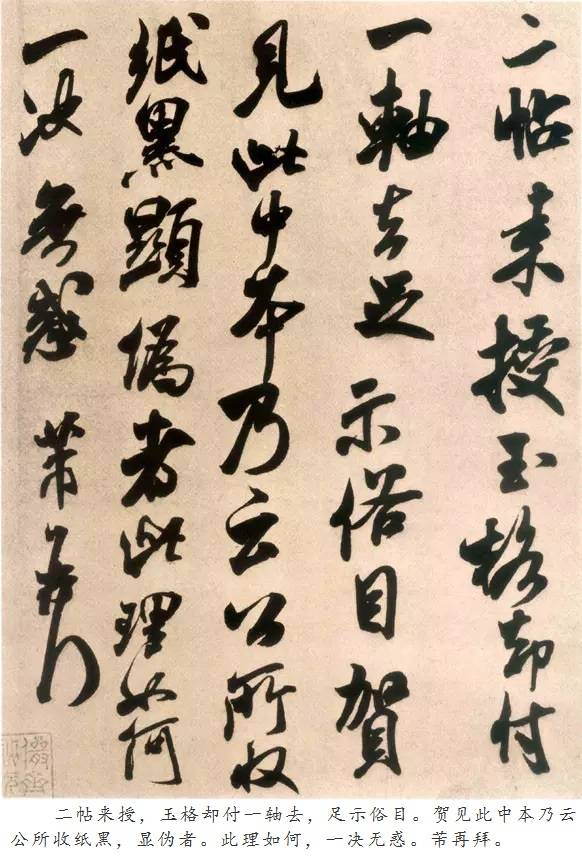 二帖来授玉格却付
一軸去足示俗目賀
見此中本乃云公所收
紙黑顯偽者此理如何
一决無惑芾再拜
二帖来授，玉格却付一轴去，足示俗目。贺见此中本乃云
公所收纸黑，显伪者。此理如何，一决无惑。芾再拜。